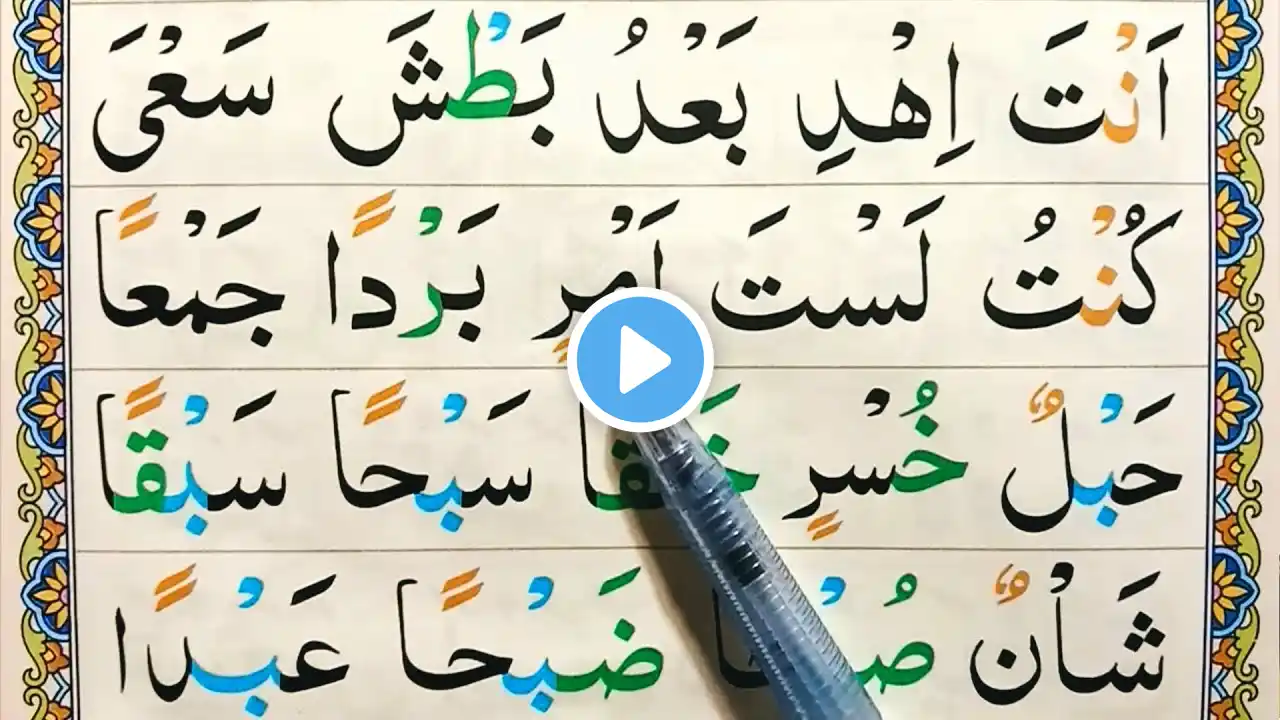 اَنْتَ اِهْدِ بَعْدُ بَطْشَ سَعْیَ
كُنْتُ لَسْتَ اَمْرٍ بَرْدًا جَمْعًا
حَبْلٌ خُسْرٍ سَبْحًا سَبْقًا
شَاْنٌ ضَبْحًا عَبْدًا